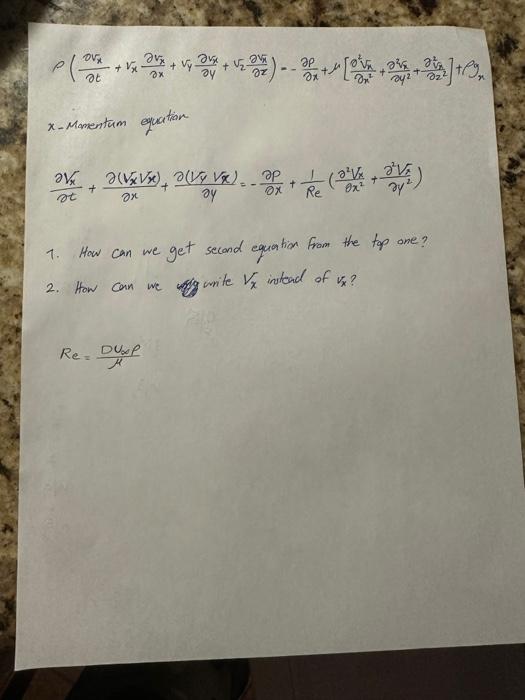 ρ ( ∂vₓ/∂t + vₓ ∂vₓ/∂x + v_y ∂vₓ/∂y + v_z ∂vₓ/∂z ) = - ∂p/∂x + μ [ ∂²vₓ/∂x² + ∂²vₓ/∂y² + ∂²vₓ/∂z² ] + ρgₓ
x-Momentum equation
∂Vₓ/∂t + ∂(VₓVₓ)/∂x + ∂(V_y Vₓ)/∂y = - ∂p/∂x + 1/Re ( ∂²Vₓ/∂x² + ∂²Vₓ/∂y² )
1. How can we get second equation from the top one?
2. How can we write Vₓ instead of vₓ?
Re = DU∞ρ/μ